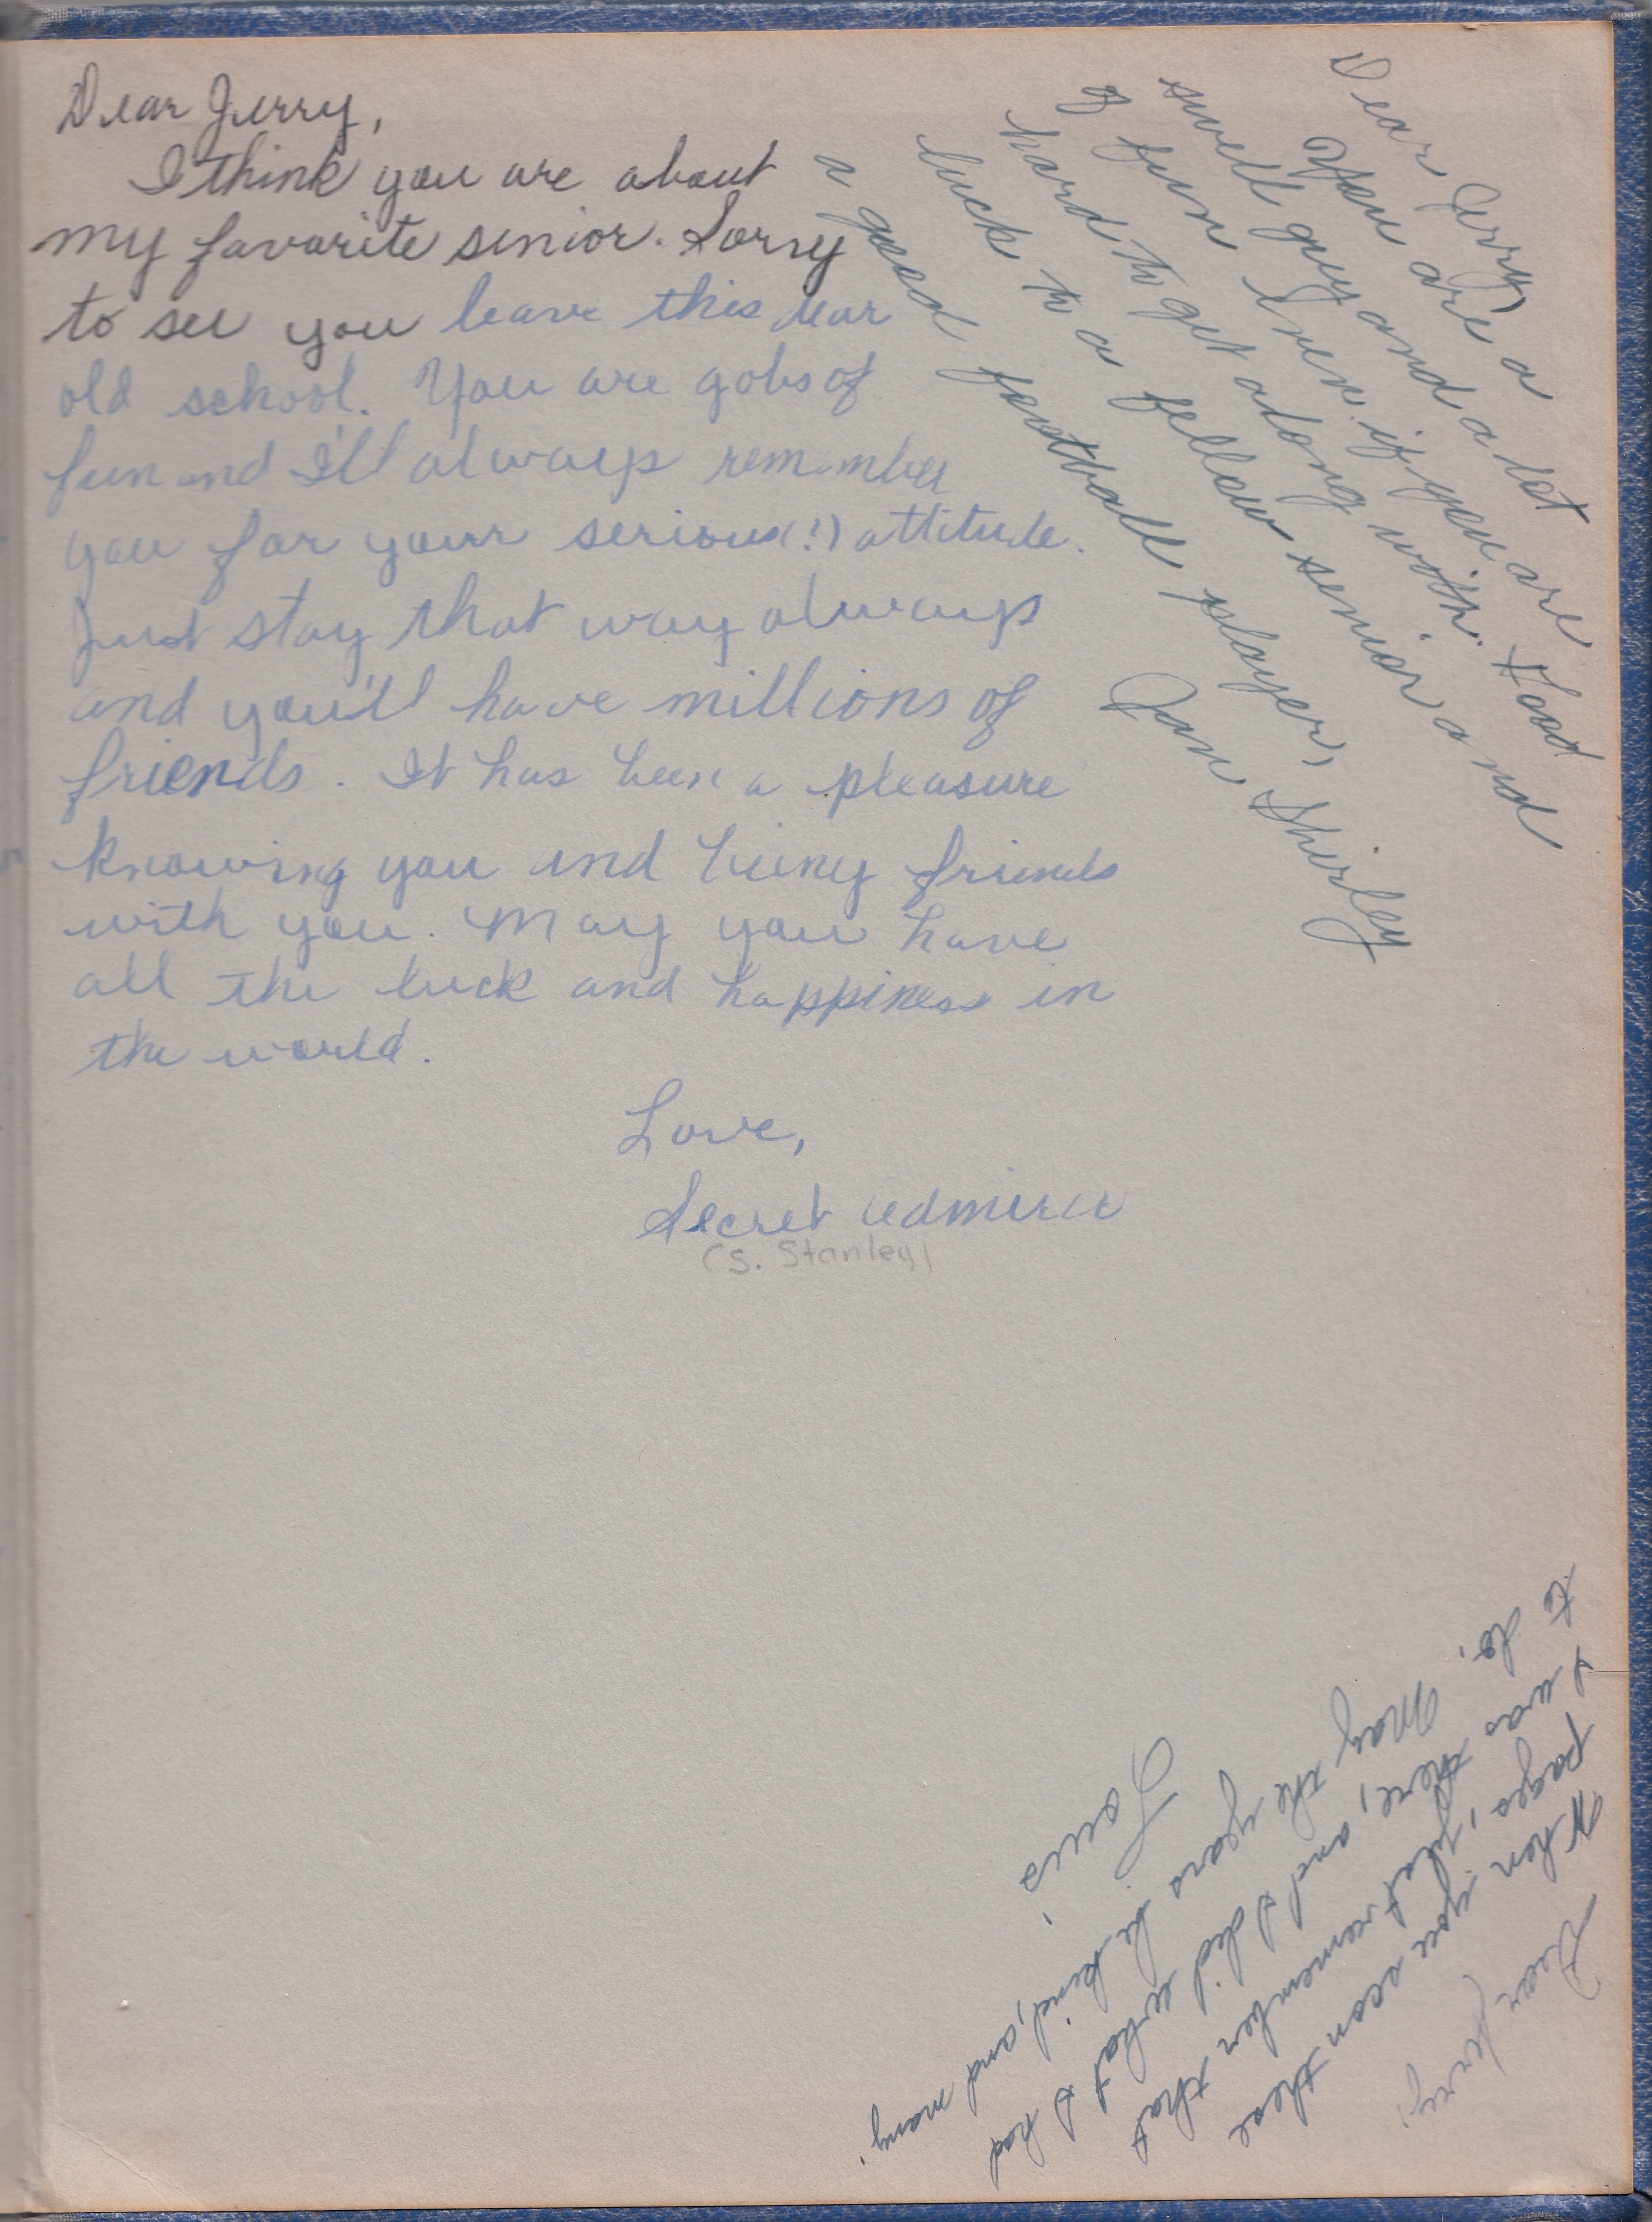 Dear Jerry,
I think you are about
my favorite senior. Sorry
to see you leave this dear
old school. You are gobs of
fun and I'll always remember
you for your serious (!) attitude.
Just stay that way always
and you'll have millions of
friends. It has been a pleasure
knowing you and being friends
with you. May you have
all the luck and happiness in
the world.
Love,
Secret Admirer
(S. Stanley)
Dear Jerry,
You are a
swell guy and a lot
of fun even if you are
hard to get along with. Good
luck to a fellow senior and
a good football player,
Jan Shirley
Dear Jerry,
When you scan these
pages, just remember that
I was there, and I did what I had
to do,
May the years be kind, and many.
Louis